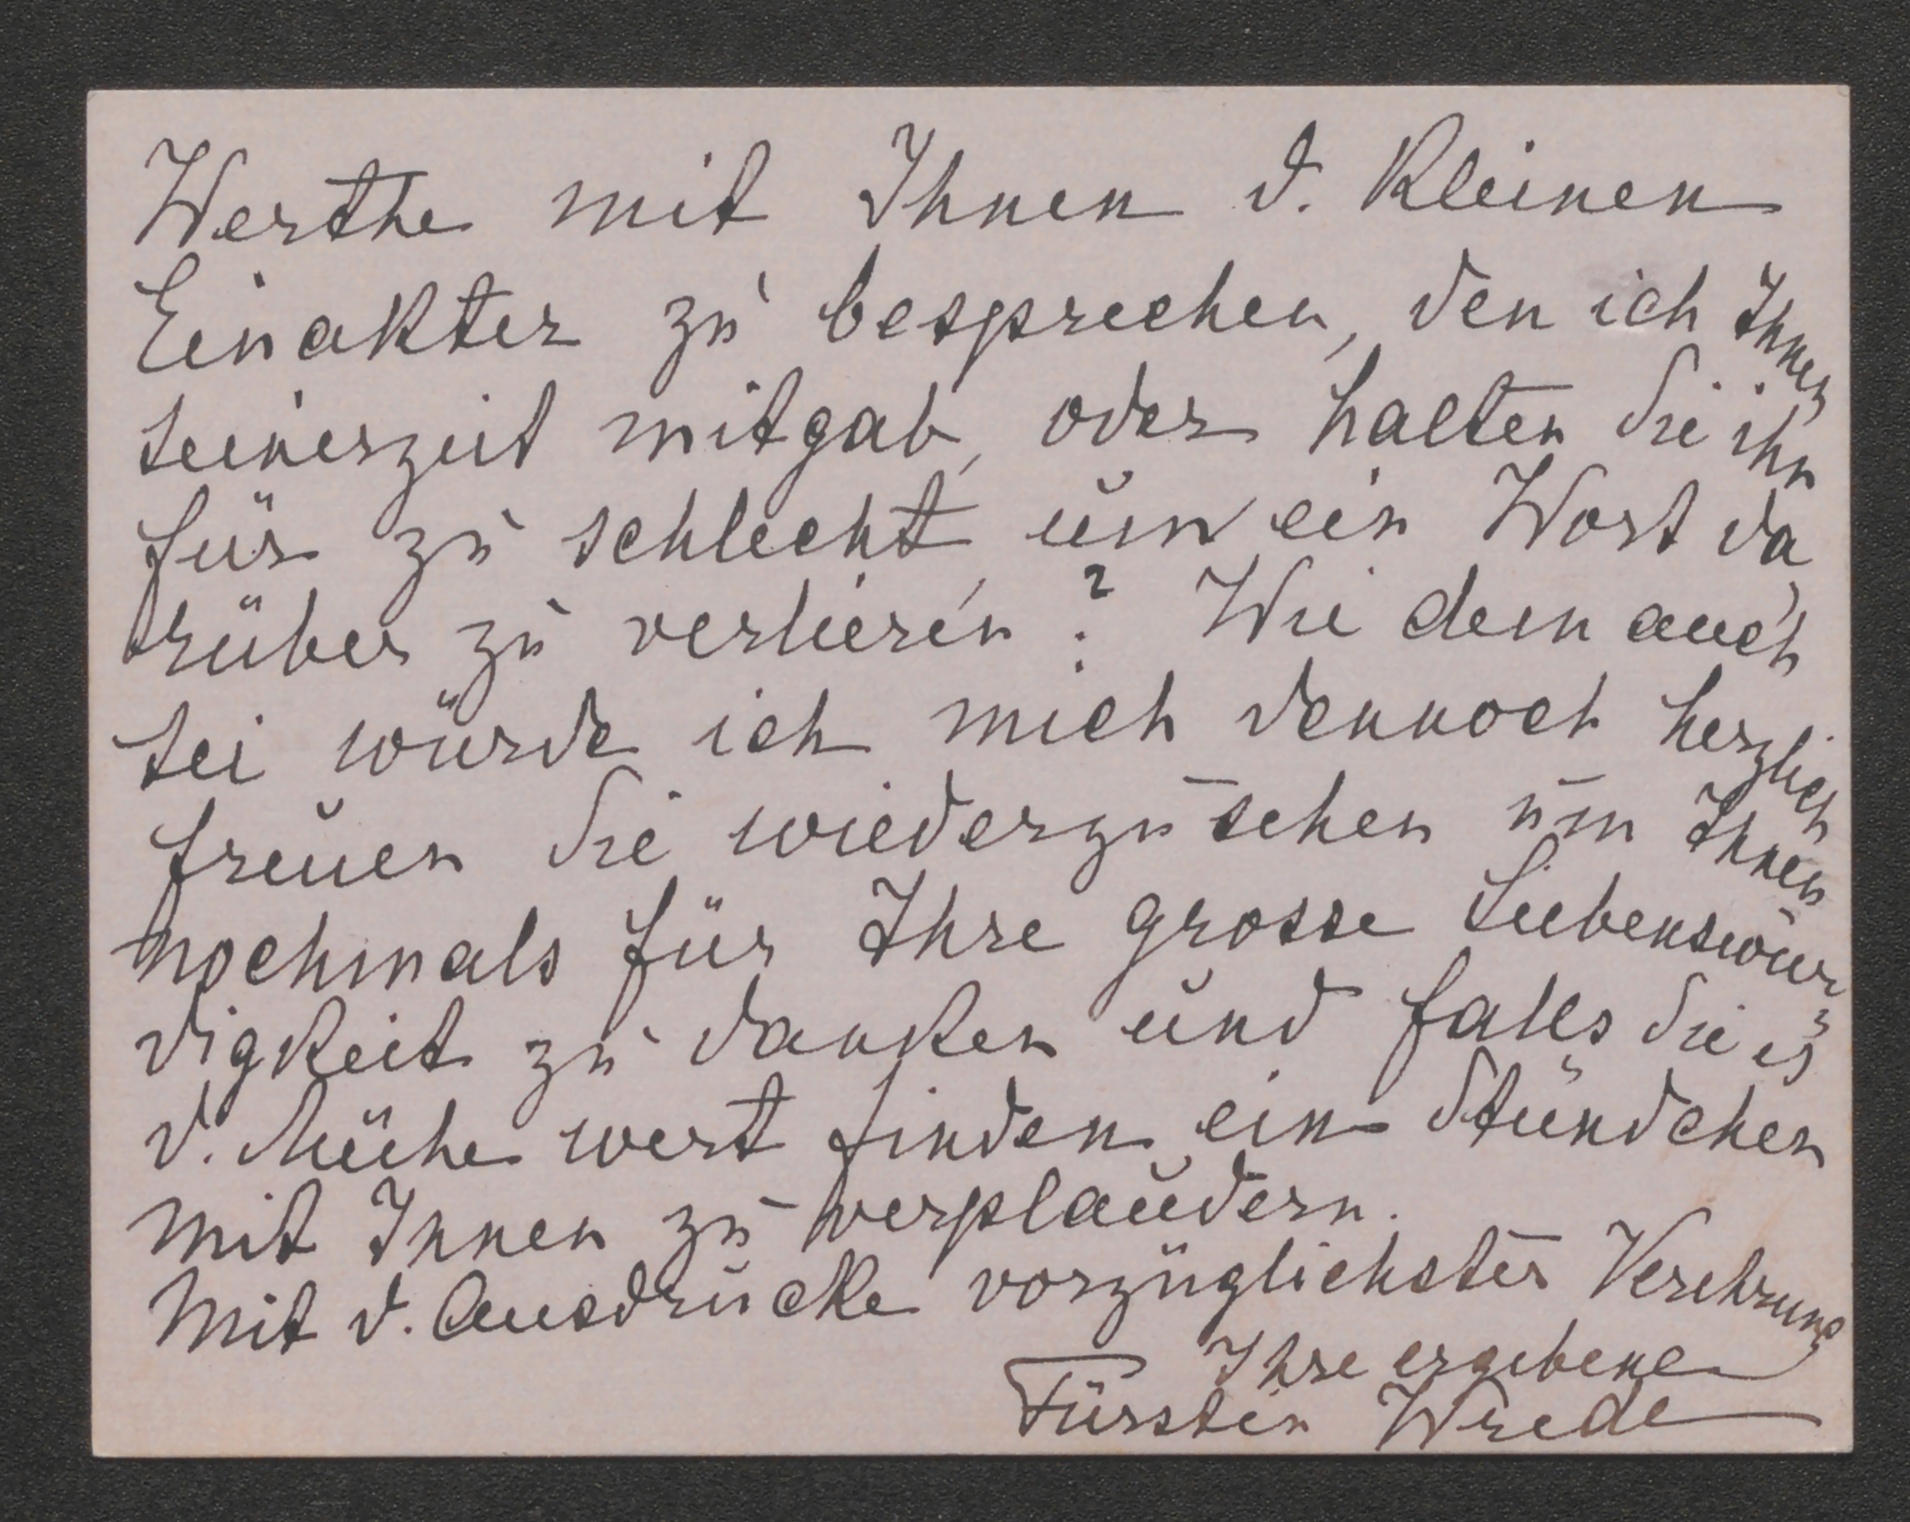 Werthe mit Ihnen d. Kleinen
Einakter zu besprechen, den ich Ihnen
seinerzeit mitgab, oder halten Sie ihn
für zu schlecht, um ein Wort da
rüber zu verlieren? Wie dem auch
sei würde ich mich dennoch herzlich
freuen Sie wiederzusehen um Ihnen
nochmals für Ihre grosse Liebenswür-
digkeit zu danken und falls Sie es
d. Mühe wert finden ein Stündchen
mit Ihnen zu verplaudern.
Mit d. Ausdrucke vorzüglichster Verehrung
Ihre ergebene
Fürstin Wrede